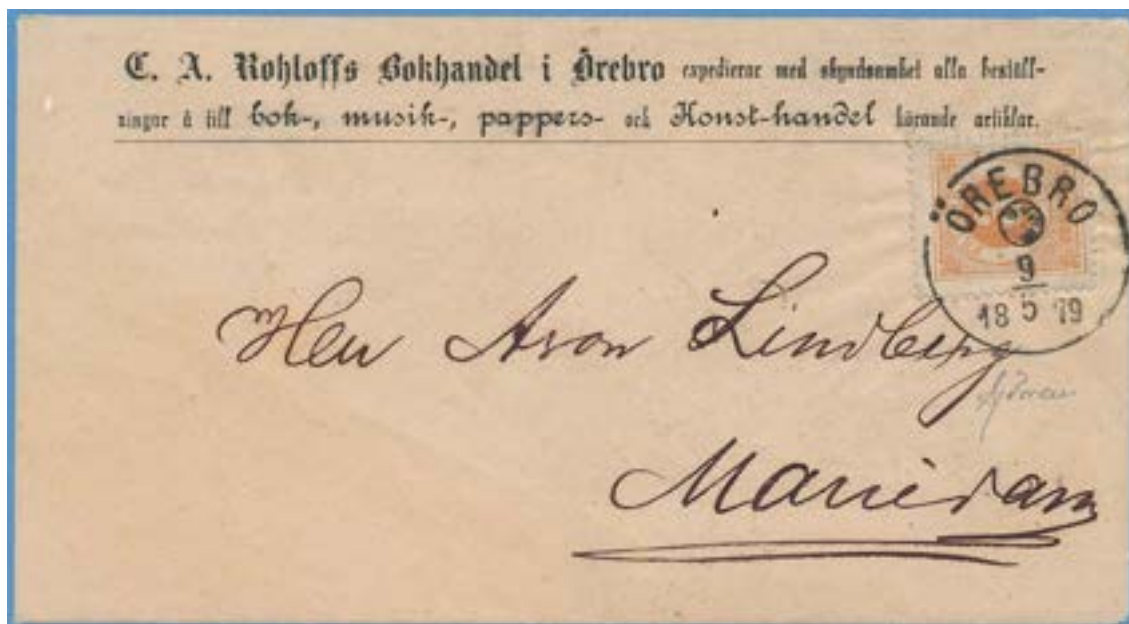 C. A. Rohloffs Bokhandel i Örebro expedierar med skyndsamhet alla beställ-
ningar å till bok-, musik-, pappers- och Konst-handel hörande artiklar.
ÖREBRO
9
18 5 79
Herr Aron Lindberg
Mariedam